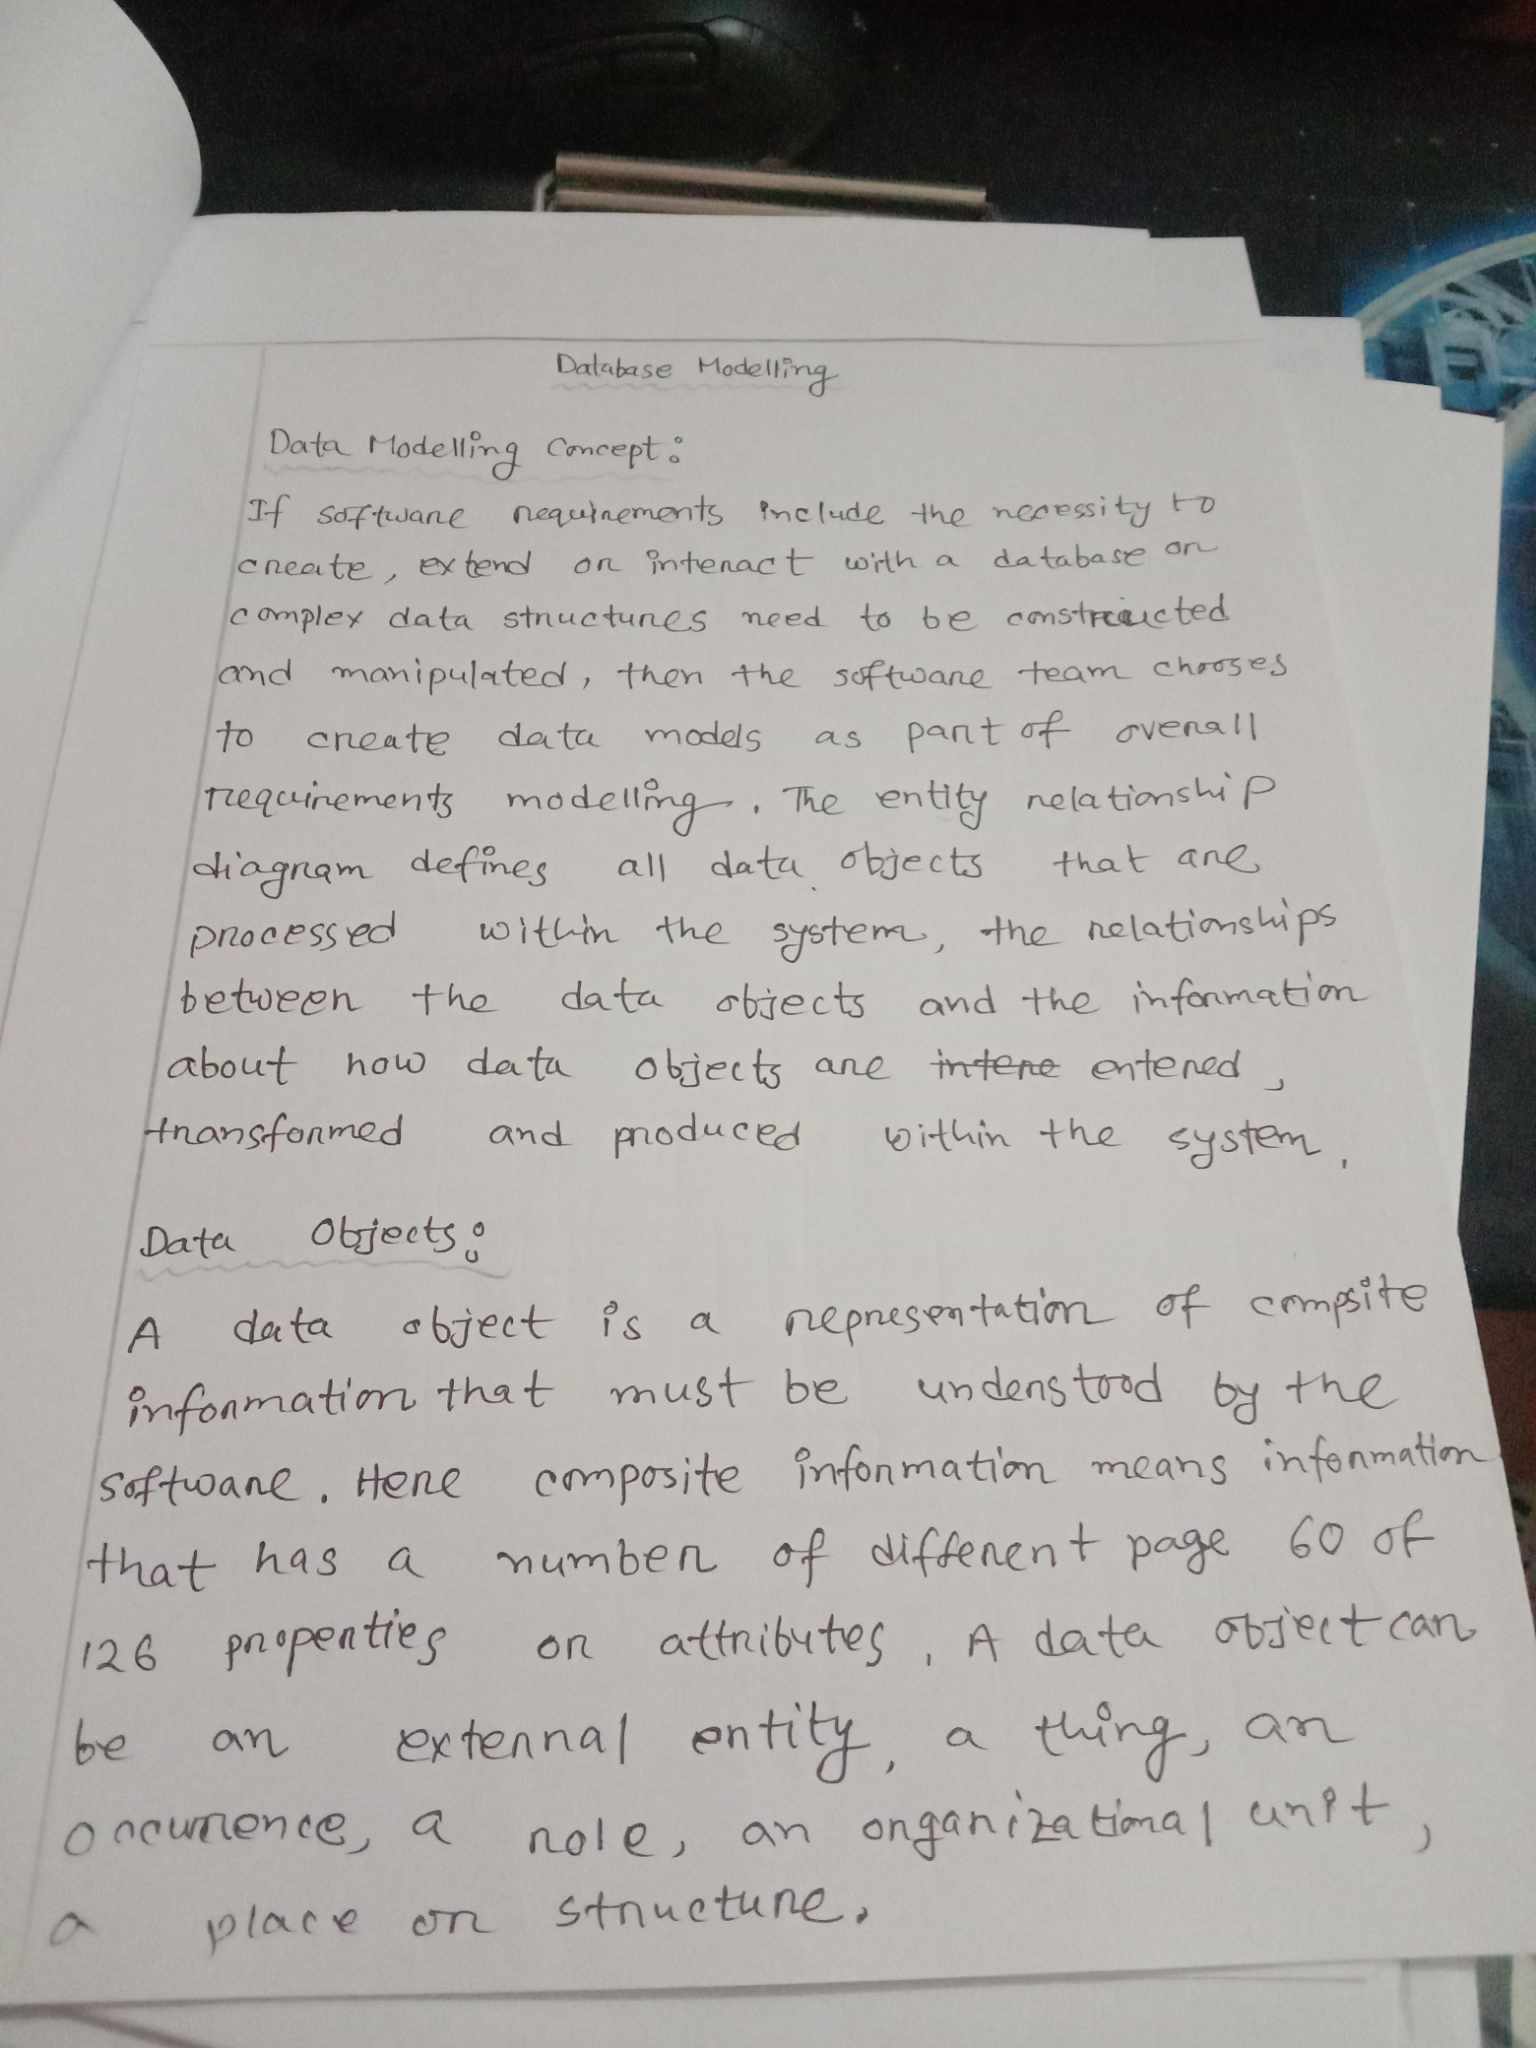 Database Modelling
Data Modelling Concept:
If software requirements include the necessity to
create, extend or interact with a database or
complex data structures need to be constructed
and manipulated, then the software team chooses
to create data models as part of overall
requirements modelling. The entity relationship
diagram defines all data objects that are
processed within the system, the relationships
between the data objects and the information
about how data objects are intere entered,
transformed and produced within the system.
Data Objects:
A data object is a representation of compsite
information that must be understood by the
software. Here composite information means information
that has a number of different page 60 of
126 properties or attributes. A data object can
be an external entity, a thing, an
occurrence, a role, an organizational unit,
a place or structure.